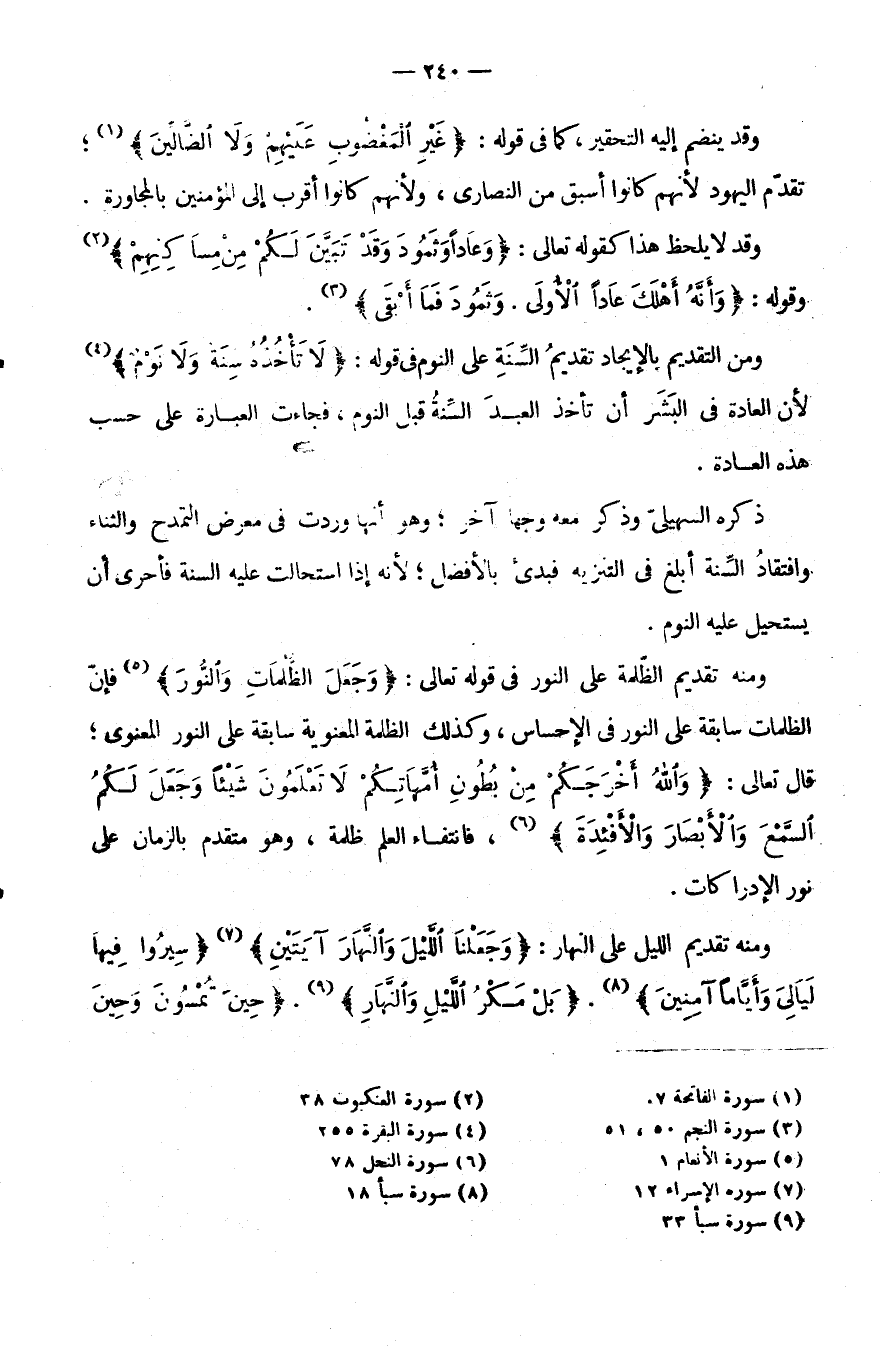 — ٢٤٠ —
وقد ينضم إليه التحقير ، كما فى قوله : ﴿ غَيْرِ ٱلْمَغْضُوبِ عَلَيْهِمْ وَلَا ٱلضَّالِّينَ ﴾ (١) ؛
تقدّم اليهود لأنهم كانوا أسبق من النصارى ، ولأنهم كانوا أقرب إلى المؤمنين بالمجاورة .
وقد لا يلحظ هذا كقوله تعالى : ﴿ وَعَاداً وَثَمُودَ وَقَدْ تَبَيَّنَ لَكُمْ مِنْ مسَاكِنِهِمْ ﴾ (٢)
وقوله : ﴿ وَأَنَّهُ أَهْلَكَ عَاداً ٱلْأُولَى . وَثَمُودَ فَمَا أَبْقَى ﴾ (٣) .
ومن التقديم بالإيجاد تقديمُ السِّنَةِ على النوم فى قوله : ﴿ لَا تَأْخُذُهُ سِنَةٌ وَلَا نَوْمٌ ﴾ (٤)
لأن العادة فى البَشَر أن تأخذ العبدَ السِّنةُ قبل النوم ، فجاءت العبارة على حسب
هذه العادة .
ذكره السهيلىّ وذكر معه وجها آخر ؛ وهو أنها وردت فى معرض التمدح والثناء
وافتقادُ السِّنة أبلغ فى التنزيه فبدئ بالأفضل ؛ لأنه إذا استحالت عليه السنة فأحرى أن
يستحيل عليه النوم .
ومنه تقديم الظّلمة على النور فى قوله تعالى : ﴿ وَجَعَلَ الظُّلُمَاتِ وَٱلنُّورَ ﴾ (٥) فإنّ
الظلمات سابقة على النور فى الإحساس ، وكذلك الظلمة المعنوية سابقة على النور المعنوى ؛
قال تعالى : ﴿ وَٱللهُ أَخْرَجَكُمْ مِنْ بُطُونِ أُمَّهَاتِكُمْ لَا تَعْلَمُونَ شَيْئاً وَجَعَلَ لَكُمُ
ٱلسَّمْعَ وَٱلْأَبْصَارَ وَالْأَفْئِدَةَ ﴾ (٦) ، فانتفاء العلم ظلمة ، وهو متقدم بالزمان على
نور الإدراكات .
ومنه تقديم الليل على النهار : ﴿ وَجَعَلْنَا ٱللَّيْلَ وَٱلنَّهَارَ آيَتَيْنِ ﴾ (٧) ﴿ سِيرُوا فِيهاَ
لَيَالِىَ وَأَيَّاماً آمِنِينَ ﴾ (٨) . ﴿ بَلْ مَكْرُ ٱللَّيْلِ وَٱلنَّهَارِ ﴾ (٩) . ﴿ حِينَ تُمْسُونَ وَحِينَ
(١) سورة الفاتحة ٧. (٢) سورة العنكبوت ٣٨
(٣) سورة النجم ٥٠ ، ٥١ (٤) سورة البقرة ٢٥٥
(٥) سورة الأنعام ١ (٦) سورة النحل ٧٨
(٧) سوره الإسراء ١٢ (٨) سورة سبأ ١٨
(٩) سورة سبأ ٣٣